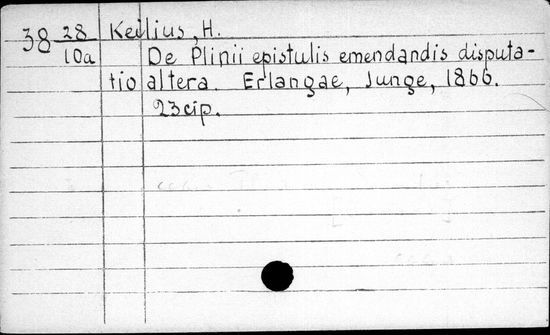 38 28/10a Keilius, H.
De Plinii epistulis emendandis disputa-
tio altera. Erlangae, Junge, 1866.
23 cip.